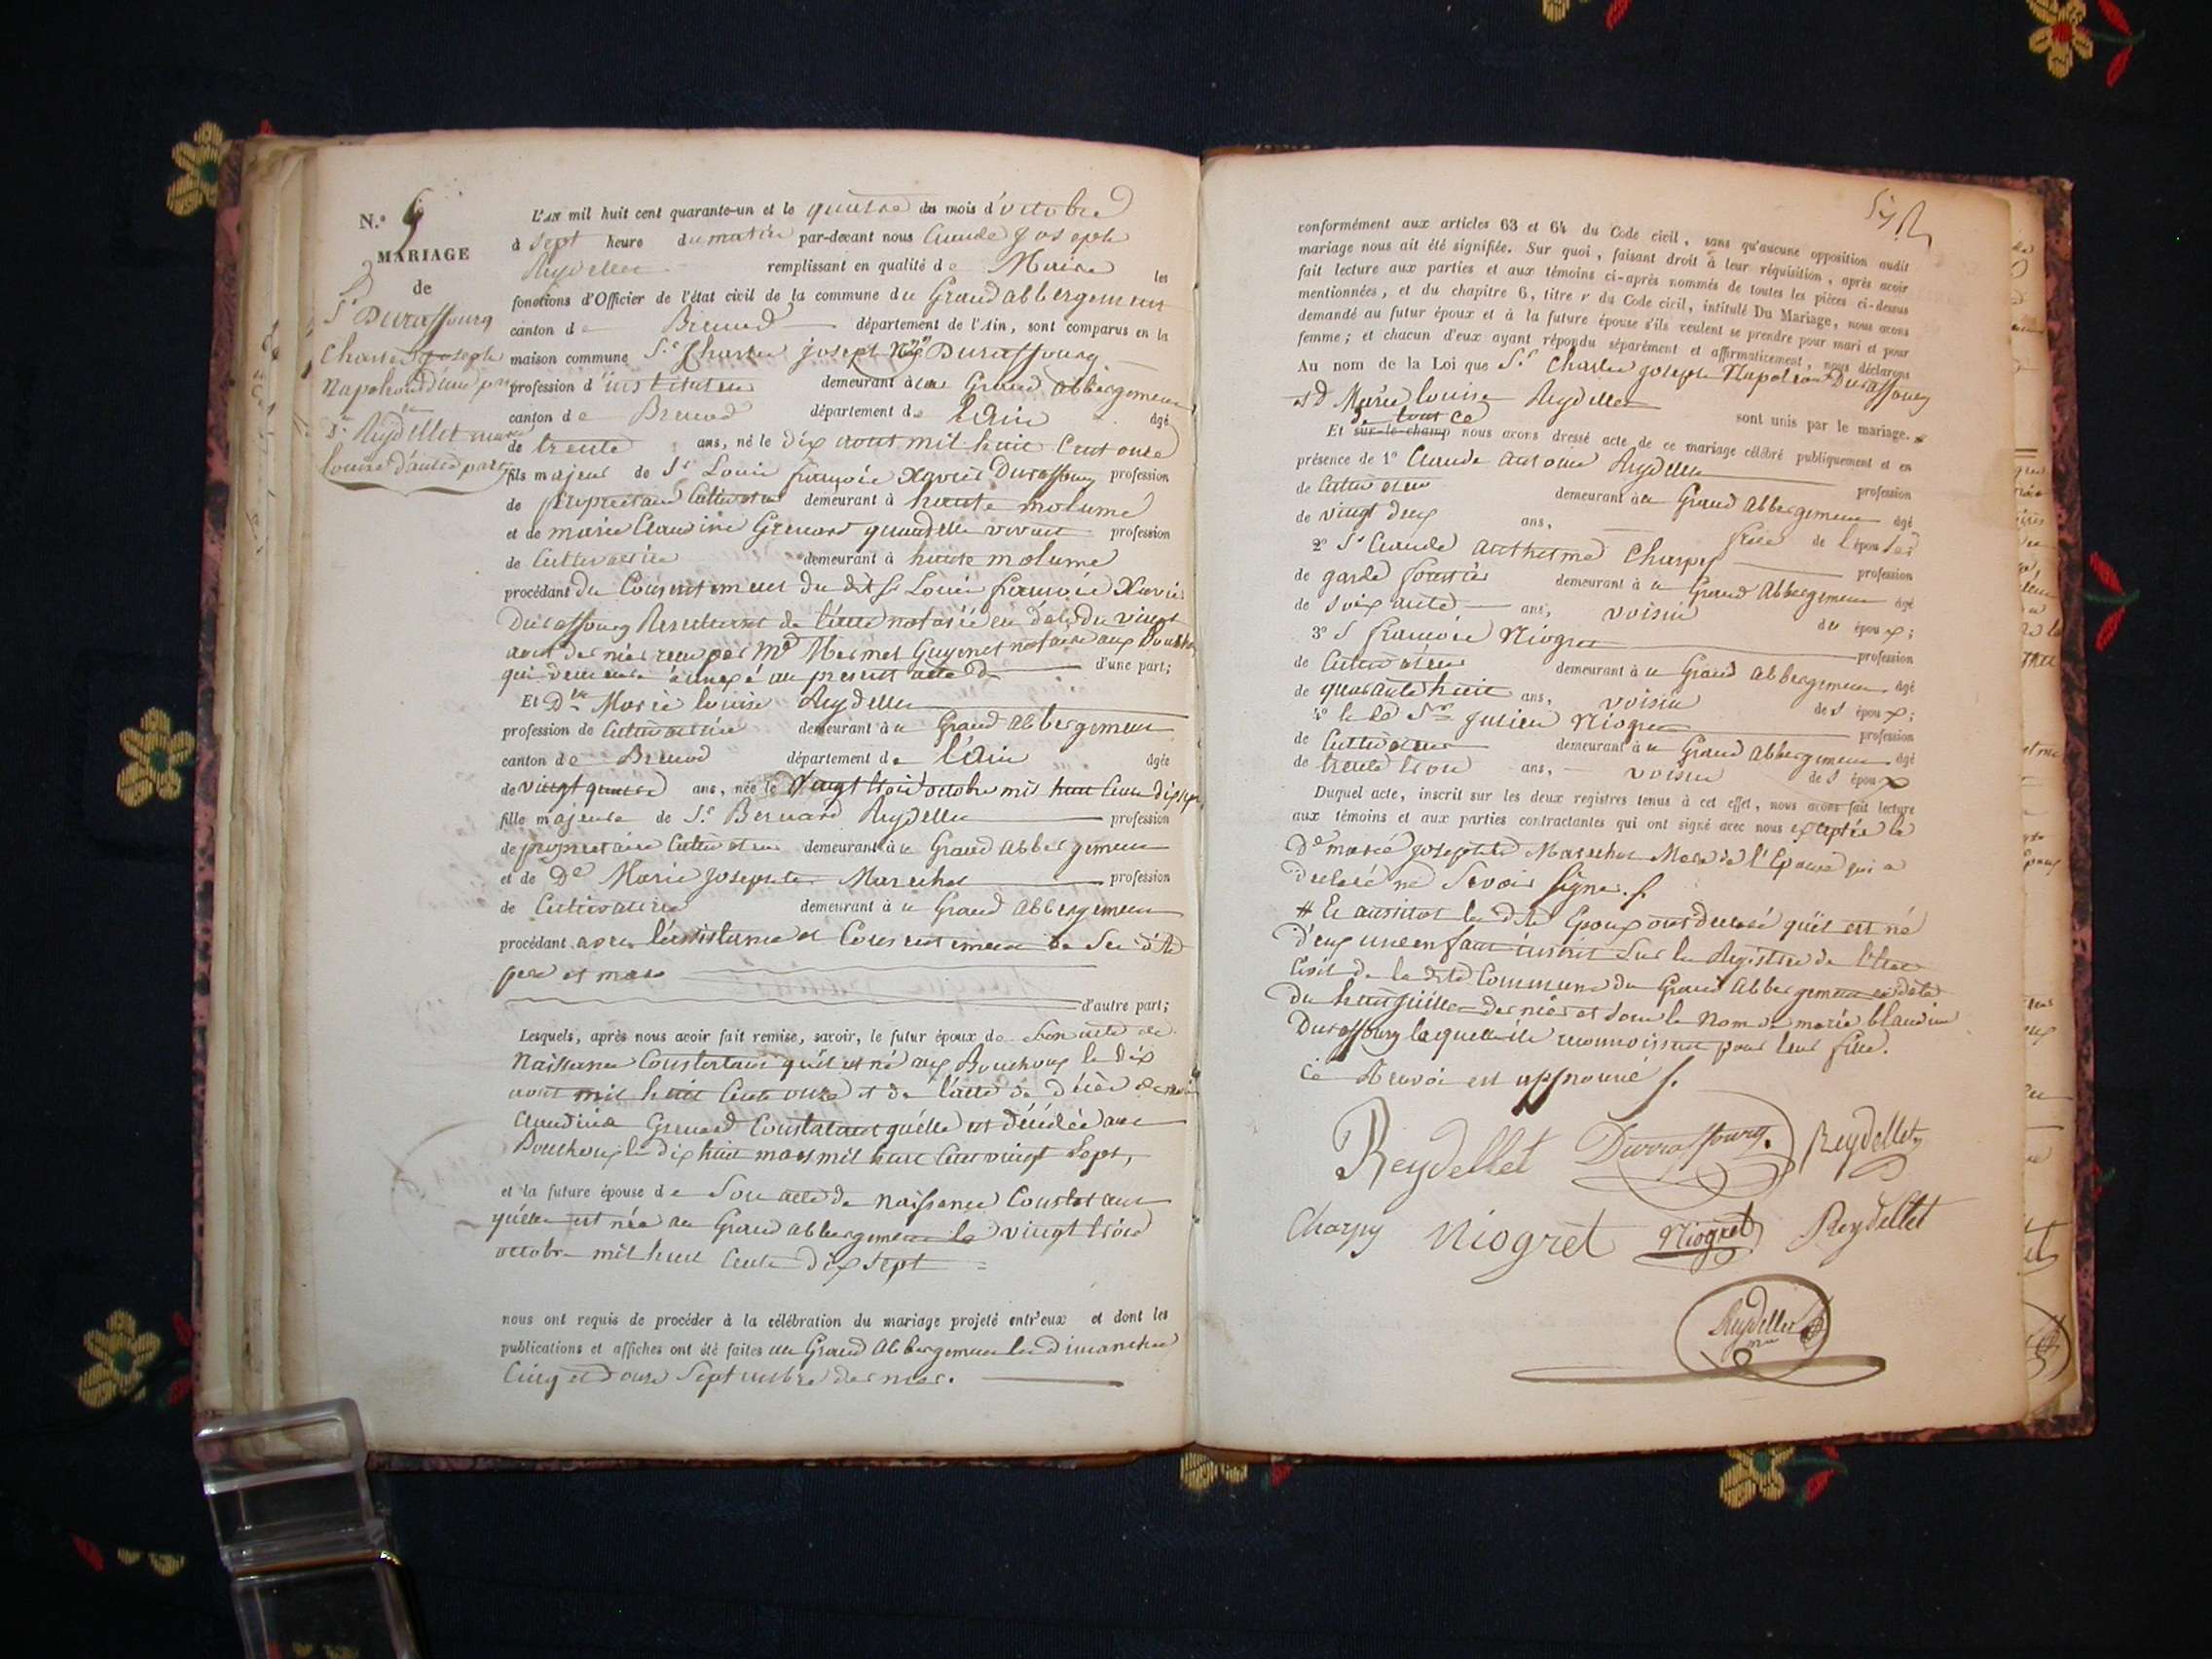 N.° 5
MARIAGE
de
S.r Durassourg
Charles joseph
Napoléon d'une part
D.lle Reydellet marie
louise d'autre part
L'AN mil huit cent quarante-un et le quatre du mois d'octobre
à sept heure du matin par-devant nous Claude joseph
Reydellet remplissant en qualité de Maire les
fonctions d'Officier de l'état civil de la commune du Grand abbergement
canton de Brenod département de l'Ain, sont comparus en la
maison commune S.r Charles joseph N.on Durassourg
profession d'instituteur demeurant au Grand abbergement
canton de Brenod département de l'ain âgé
de trente ans, né le dix aout mil huit Cent onze
fils majeur de S.r Louis françois Xavier Durassourg profession
de propriétaire Cultivateur demeurant à haute molune
et de marie Claudine Grenard quand elle vivait profession
de Cultivatrice demeurant à haute molune
procédant du Consentement du dit S.r Louis françois Xavier
Durassourg Resultant de l'acte notarié en date du vingt
aout dernier reçu par M.e Mermet Guyenet notaire aux Bouchoux
qui demeure annexé au present acte d'une part;
Et D.lle Marie louise Reydellet
profession de Cultivatrice demeurant au Grand abbergement
canton de Brenod département de l'ain âgée
de vingt quatre ans, née le vingt trois octobre mil huit Cent dix sept
fille majeure de S.r Bernard Reydellet profession
de propriétaire Cultivateur demeurant au Grand abbergement
et de D.e Marie josephte Marechal profession
de Cultivatrice demeurant au Grand abbergement
procédant avec l'assistance et Consentement de Ses dits
pere et mere
d'autre part;
Lesquels, après nous avoir fait remise, savoir, le futur époux de Son acte de
Naissance Constatant qu'il est né aux Bouchoux le dix
aout mil huit Cent onze et de l'acte de décès de marie
Claudine Grenard Constatant qu'elle est décédée aux
Bouchoux le dix huit mars mil huit Cent vingt Sept,
et la future épouse de Son acte de naissance Constatant
qu'elle est née au Grand abbergement le vingt trois
octobre mil huit Cent dix sept
nous ont requis de procéder à la célébration du mariage projeté entr'eux et dont les
publications et affiches ont été faites au Grand abbergement les dimanches
Cinq et douze Septembre dernier.
conformément aux articles 63 et 64 du Code civil, sans qu'aucune opposition audit
mariage nous ait été signifiée. Sur quoi, faisant droit à leur réquisition, après avoir
fait lecture aux parties et aux témoins ci-après nommés de toutes les pièces ci-dessus
mentionnées, et du chapitre 6, titre v du Code civil, intitulé Du Mariage, nous avons
demandé au futur époux et à la future épouse s'ils veulent se prendre pour mari et pour
femme; et chacun d'eux ayant répondu séparément et affirmativement, nous déclarons
Au nom de la Loi que S.r Charles joseph Napoléon Durassourg
et D. Marie louise Reydellet sont unis par le mariage. #
de tout ce
Et sur-le-champ nous avons dressé acte de ce mariage célébré publiquement et en
présence de 1° Claude antoine Reydellet profession
de Cultivateur demeurant au Grand abbergement âgé
de vingt deux ans, frere de l'épouse
2° S.r Claude anthelme Charpy profession
de garde forestier demeurant au Grand abbergement âgé
de soixante ans, voisin des époux;
3° S. françois Niogret profession
de Cultivateur demeurant au Grand abbergement âgé
de quarante huit ans, voisin des époux;
4° le S.r julien Niogret profession
de Cultivateur demeurant au Grand abbergement âgé
de trente trois ans, voisin des époux
Duquel acte, inscrit sur les deux registres tenus à cet effet, nous avons fait lecture
aux témoins et aux parties contractantes qui ont signé avec nous exceptée la
D.e marie josephte Marechal Mere de l'Epouse qui a
declaré ne Savoir signer.
# Et aussitot les dits Epoux ont declaré qu'il est né
d'eux une enfant inscrit Sur les Registres de l'état
Civil de la dite Commune du Grand abbergement en date
du huit juillet dernier et sous le nom de marie blandine
Durassourg laquelle ils reconnoissent pour leur fille.
Ce Renvoi est approuvé
Reydellet Durrassourg. Reydellet
Charpy Niogret Niogret Reydellet
Reydellet